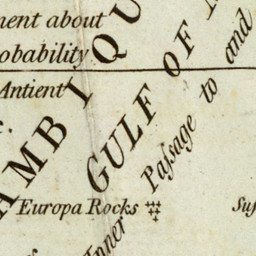 ment about
obability
Antient
AMBIQU
GULF OF
Paſsage to and
Europa Rocks
Inner